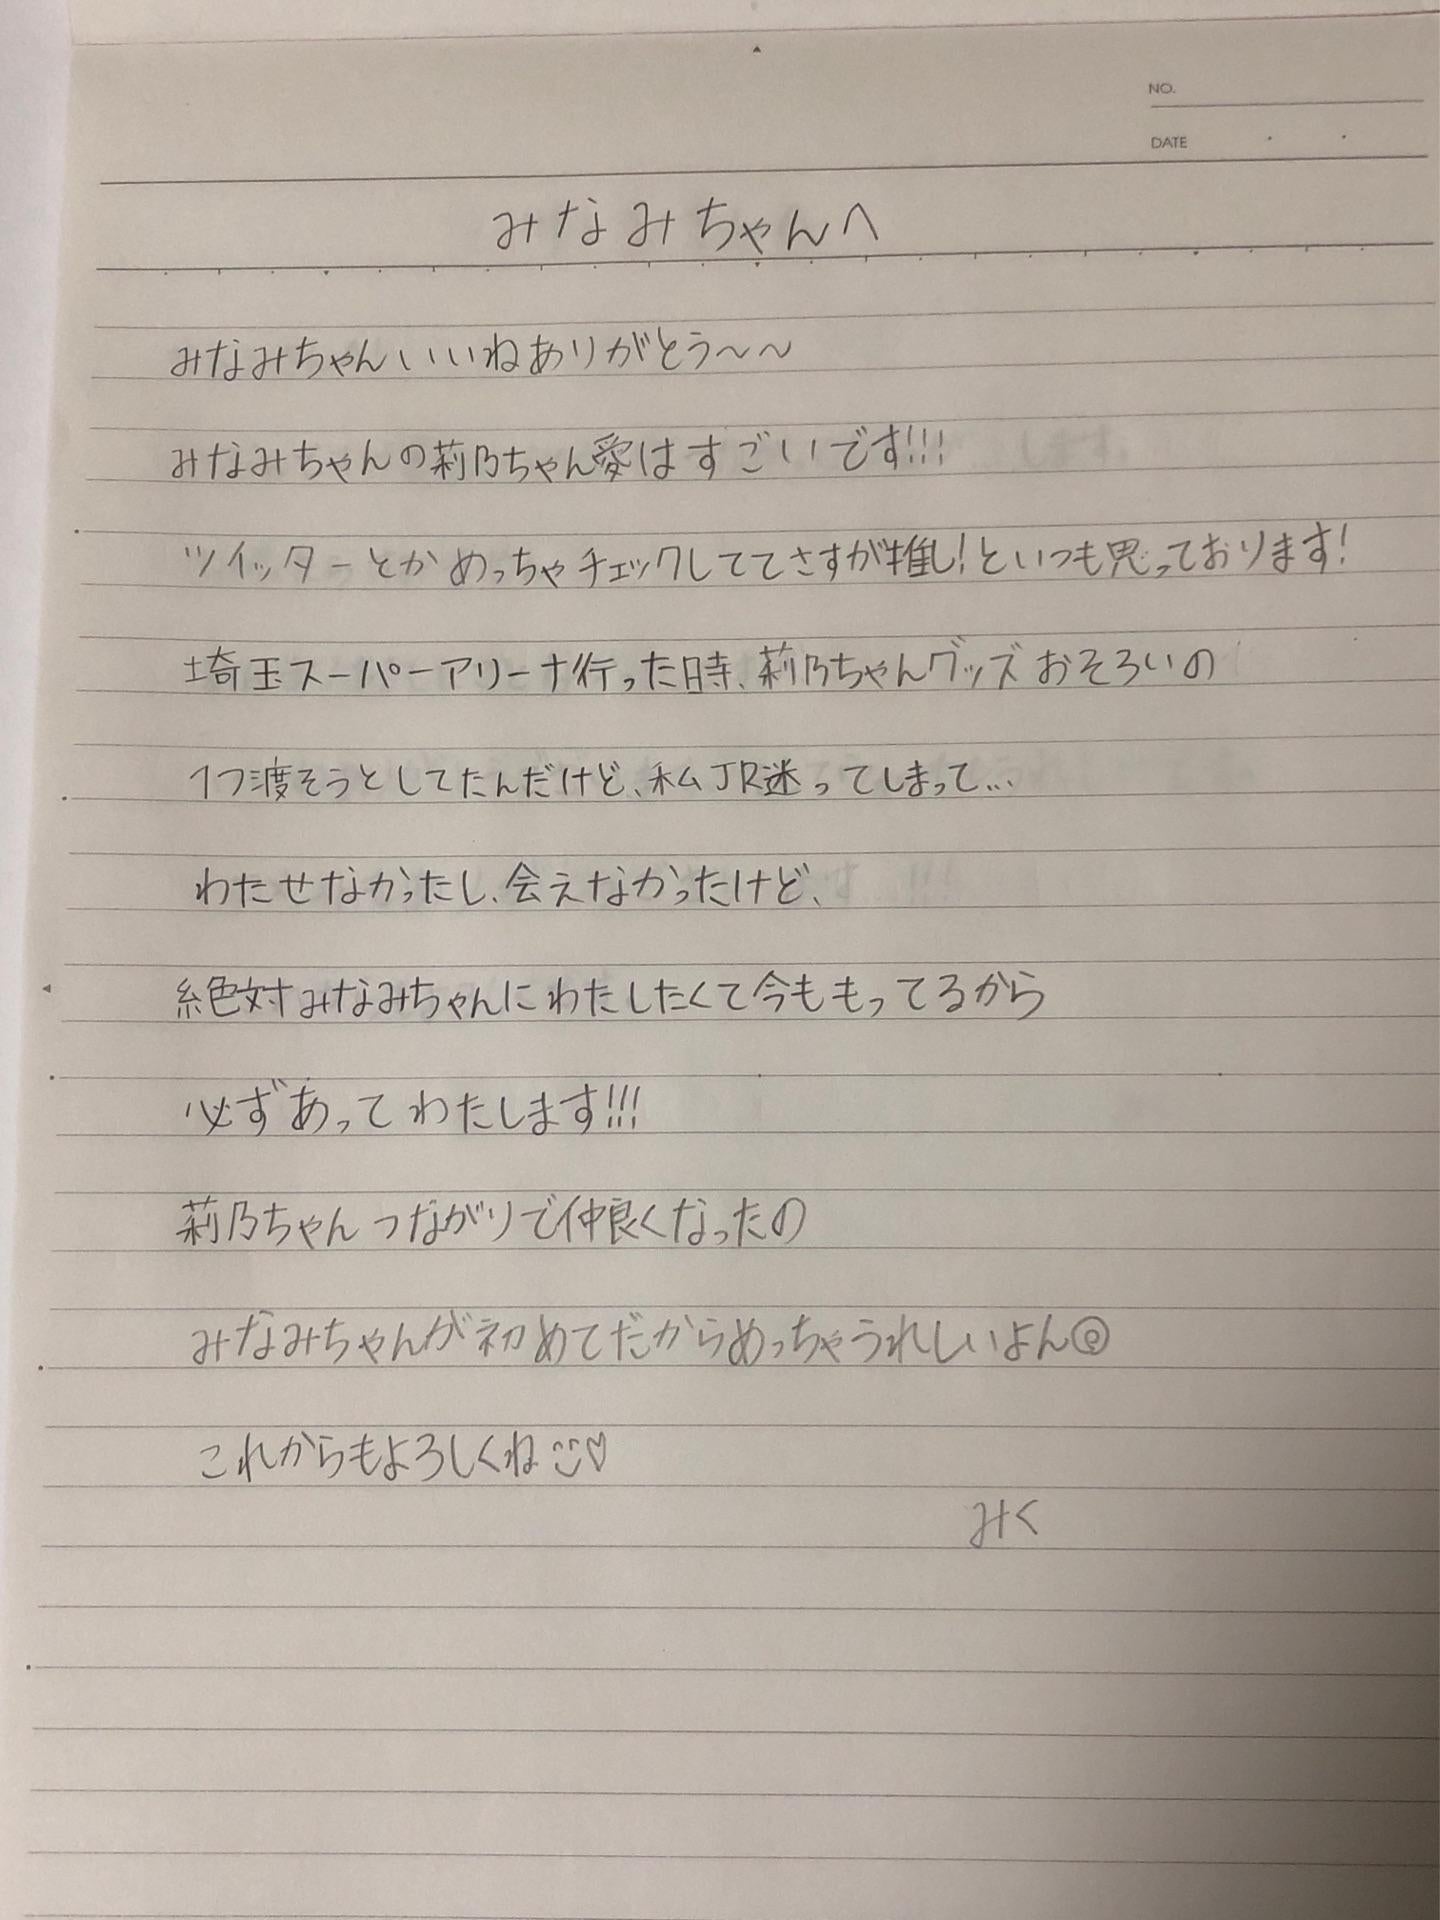 NO.
DATE
みなみちゃんへ
みなみちゃんいいねありがとう〜〜
みなみちゃんの莉乃ちゃん愛はすごいです!!!
ツイッターとかめっちゃチェックしててさすが推し!といつも思っております!
埼玉スーパーアリーナ行った時、莉乃ちゃんグッズおそろいの
1つ渡そうとしてたんだけど、私JR迷ってしまって...
わたせなかったし、会えなかったけど、
絶対みなみちゃんにわたしたくて今ももってるから
必ずあってわたします!!!
莉乃ちゃんつながりで仲良くなったの
みなみちゃんが初めてだからめっちゃうれしいよん
これからもよろしくね♡
みく